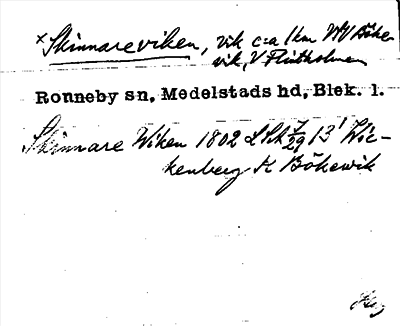 × Skinnareviken, vik c:a 1 km VNV Böke-
vik, V Flisholmen
Ronneby sn, Medelstads hd, Blek. l.
Skinnare Wiken 1802 LSA 7/29 13¹ Wic-
kenberg K Bökewik